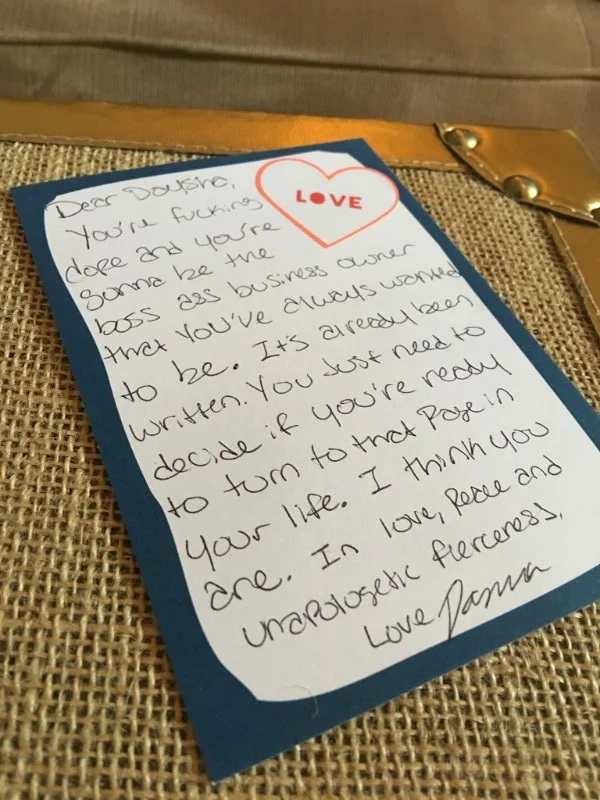 Dear Daysha,
LOVE
You're fucking
dope and you're
gonna be the
boss ass business owner
that you've always wanted
to be. It's already been
written. You just need to
decide if you're ready
to turn to that page in
your life. I think you
are. In love, peace and
unapologetic fierceness,
Love